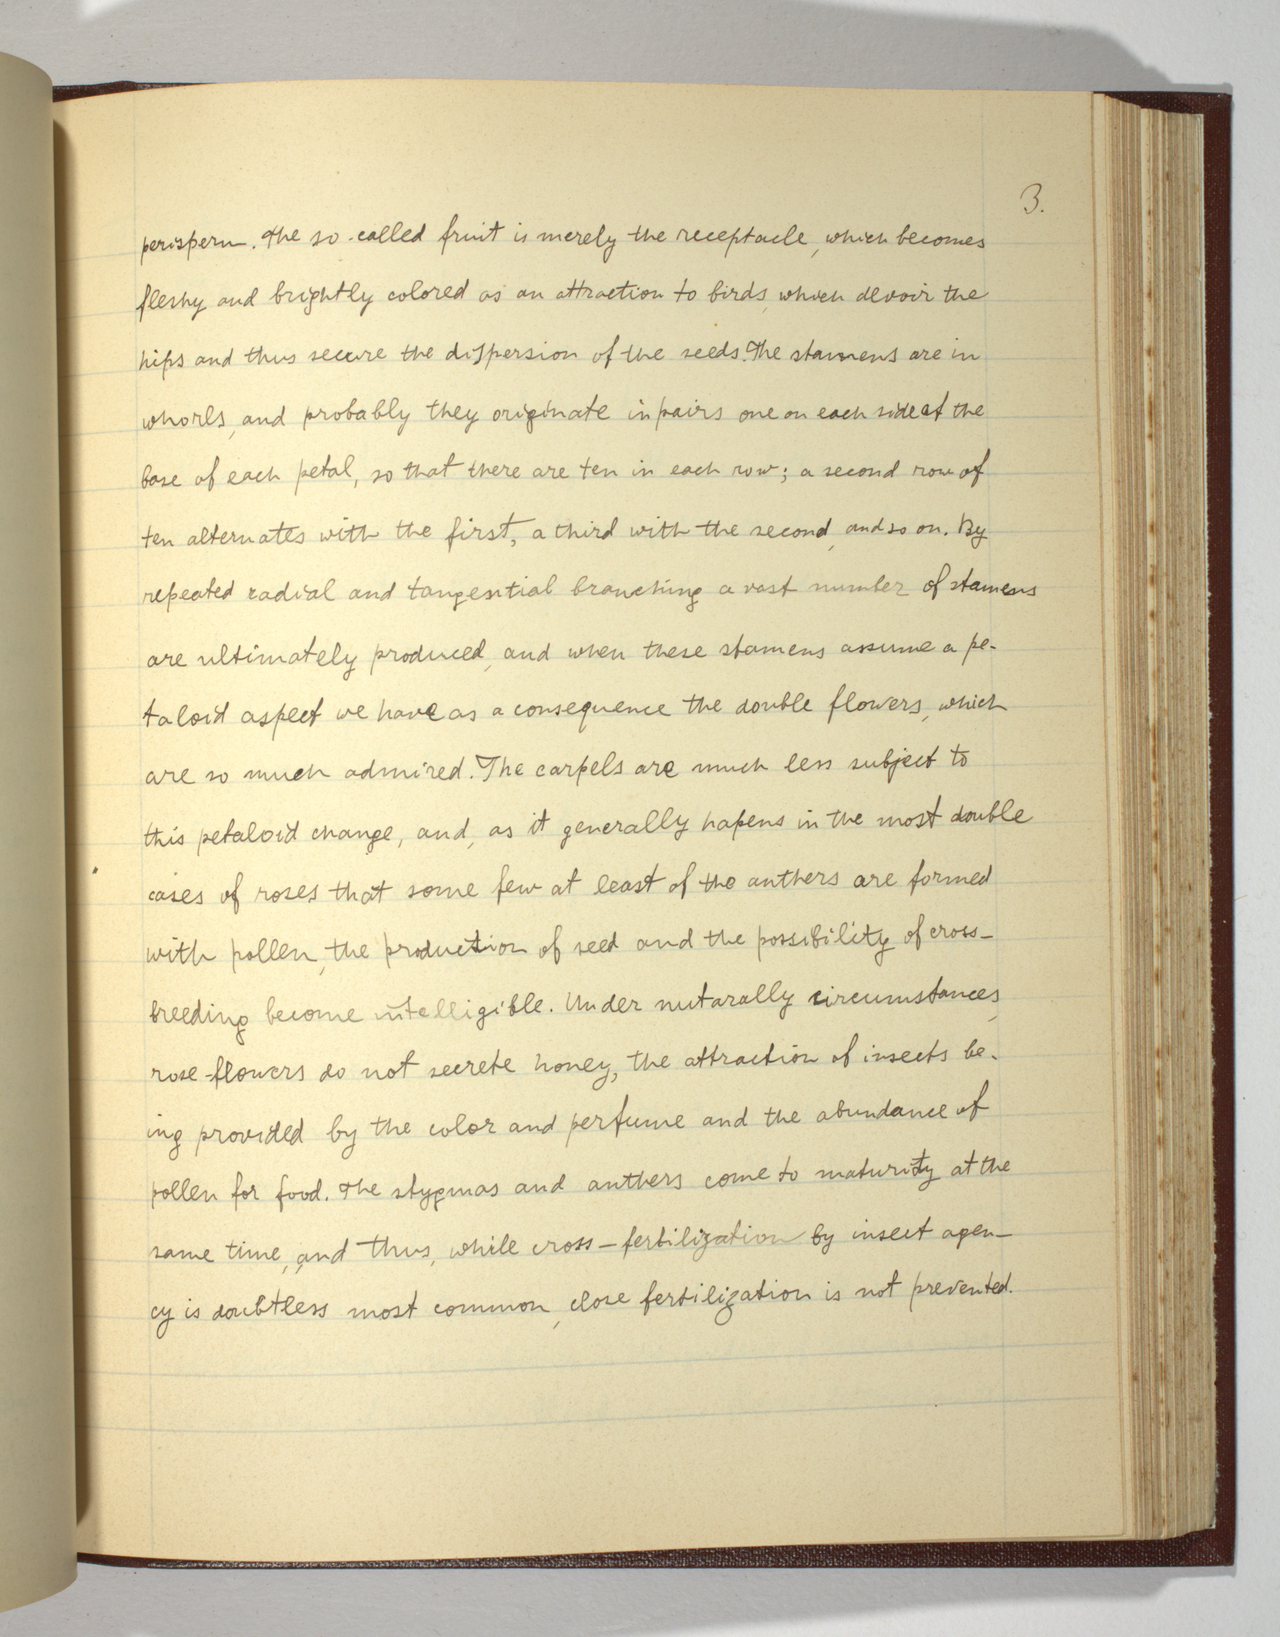 3.
perisperm. The so-called fruit is merely the receptacle, which becomes
fleshy and brightly colored as an attraction to birds, which devoir the
hips and thus secure the dispersion of the seeds. The stamens are in
whorls, and probably they originate in pairs one on each side of the
base of each petal, so that there are ten in each row; a second row of
ten alternates with the first, a third with the second, and so on. By
repeated radial and tangential branching a vast number of stamens
are ultimately produced, and when these stamens assume a pe-
taloid aspect we have as a consequence the double flowers, which
are so much admired. The carpels are much less subject to
this petaloid change, and, as it generally hapens in the most double
cases of roses that some few at least of the anthers are formed
with pollen, the production of seed and the possibility of cross-
breeding become intelligible. Under nutarally circumstances,
rose-flowers do not secrete honey, the attraction of insects be-
ing provided by the color and perfume and the abundance of
pollen for food. The stygmas and anthers come to maturity at the
same time, and thus, while cross-fertilization by insect agen-
cy is doubtless most common, close fertilization is not prevented.